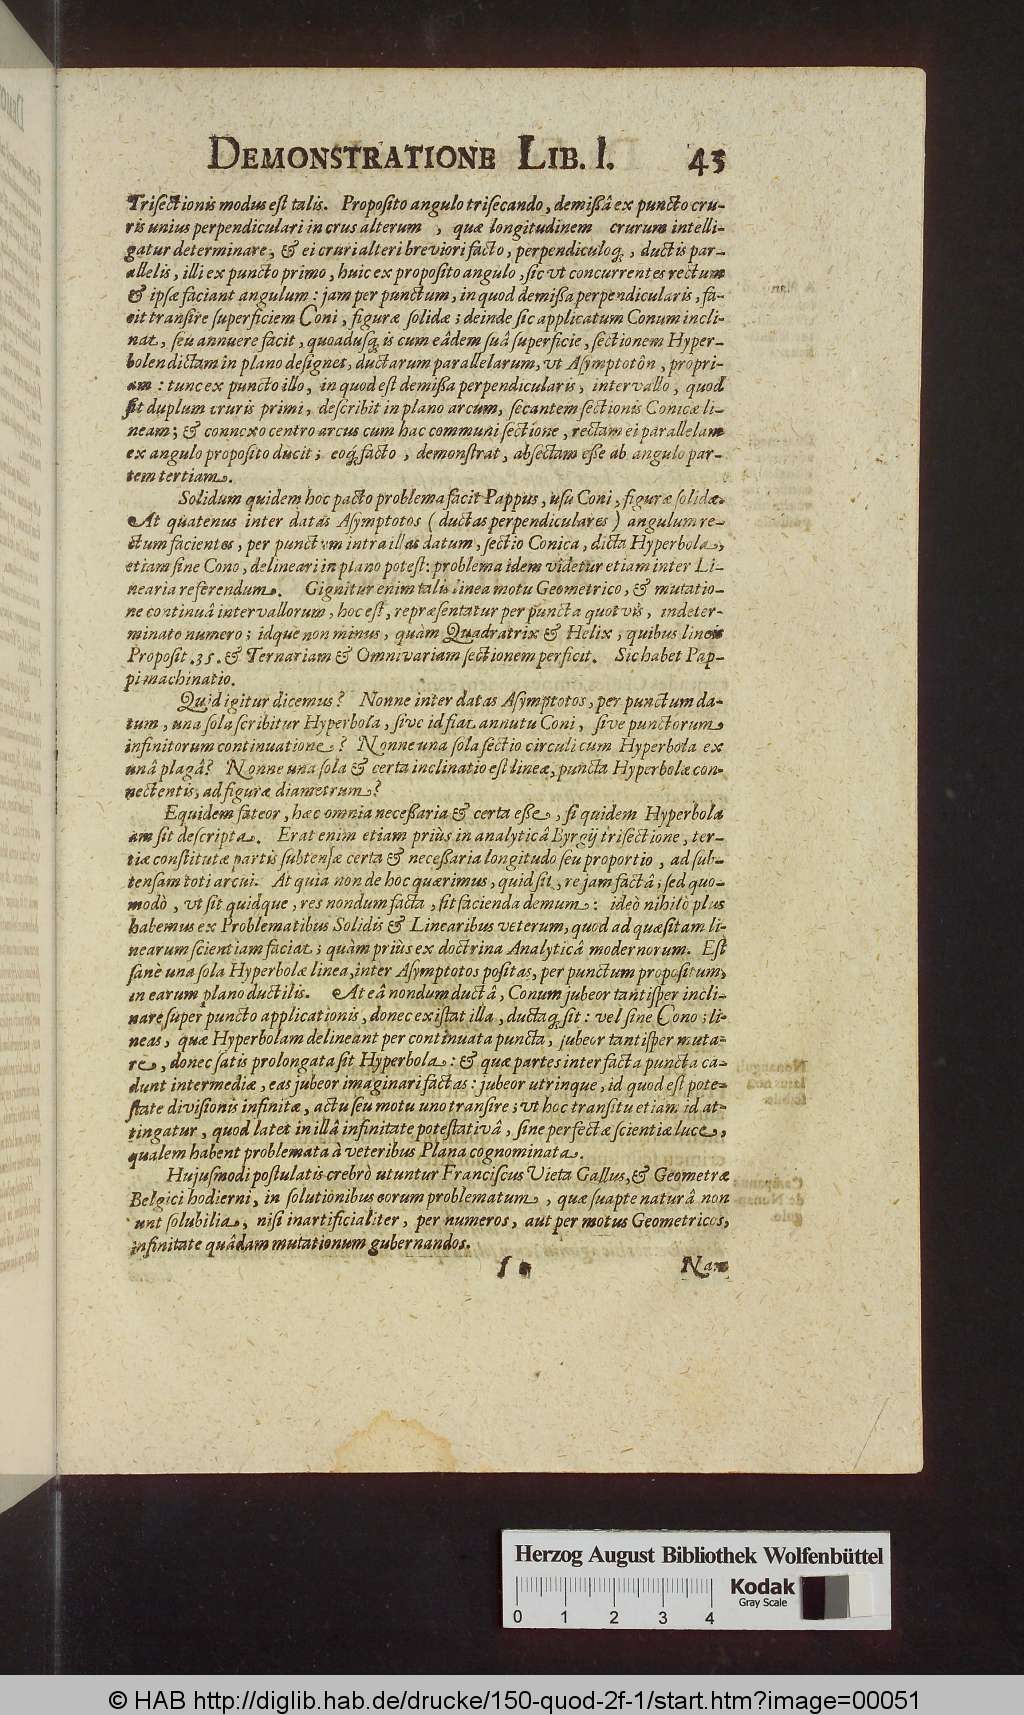 DEMONSTRATIONE LIB. I. 43
Trisectionis modus est talis. Proposito angulo trisecando, demißâ ex puncto cru-
ris unius perpendiculari in crus alterum, quæ longitudinem crurum intelli-
gatur determinare, & ei cruri alteri breviori facto, perpendiculoq;, ductis par-
allelis, illi ex puncto primo, huic ex proposito angulo, sic vt concurrentes rectum
& ipsæ faciant angulum: jam per punctum, in quod demißa perpendicularis, fa-
cit transire superficiem Coni, figuræ solidæ; deinde sic applicatum Conum incli-
nat, seu annuere facit, quoadusq; is cum eâdem suâ superficie, sectionem Hyper-
bolen dictam in plano designet, ductarum parallelarum, vt Asymptotôn, propri-
am: tunc ex puncto illo, in quod est demißa perpendicularis, intervallo, quod
sit duplum cruris primi, describit in plano arcum, secantem sectionis Conicæ li-
neam; & connexo centro arcus cum hac communi sectione, rectam ei parallelam
ex angulo proposito ducit; eoq; facto, demonstrat, absectam esse ab angulo par-
tem tertiam.
Solidum quidem hoc pacto problema facit Pappus, usu Coni, figuræ solidæ.
At quatenus inter datas Asymptotos (ductas perpendiculares) angulum re-
ctum facientes, per punctum intra illas datum, sectio Conica, dicta Hyperbola,
etiam sine Cono, delineari in plano potest: problema idem videtur etiam inter Li-
nearia referendum. Gignitur enim talis linea motu Geometrico, & mutatio-
ne continuâ intervallorum, hoc est, repræsentatur per puncta quotvis, indeter-
minato numero; idque non minus, quàm Quadratrix & Helix, quibus lineis
Proposit. 35. & Ternariam & Omnivariam sectionem perficit. Sic habet Pap-
pi machinatio.
Quid igitur dicemus? Nonne inter datas Asymptotos, per punctum da-
tum, una sola scribitur Hyperbola, sive id fiat annutu Coni, sive punctorum
infinitorum continuatione? Nonne una sola sectio circuli cum Hyperbola ex
unâ plagâ? Nonne una sola & certa inclinatio est lineæ, puncta Hyperbolæ con-
nectentis, ad figuræ diametrum?
Equidem fateor, hæc omnia necessaria & certa esse, si quidem Hyperbola
am sit descripta. Erat enim etiam priùs in analyticâ Byrgij trisectione, ter-
tiæ constitutæ partis subtensæ certa & necessaria longitudo seu proportio, ad sub-
tensam toti arcui. At quia non de hoc quærimus, quid sit, re jam factâ; sed quo-
modò, vt sit quidque, res nondum facta, sit facienda demum: ideò nihilò plus
habemus ex Problematibus Solidis & Linearibus veterum, quod ad quæsitam li-
nearum scientiam faciat; quàm priùs ex doctrina Analyticâ modernorum. Est
sanè una sola Hyperbolæ linea, inter Asymptotos positas, per punctum propositum,
in earum plano ductilis. At eâ nondum ductâ, Conum jubeor tantisper incli-
nare super puncto applicationis, donec existat illa, ductaq; sit: vel sine Cono; li-
neas, quæ Hyperbolam delineant per continuata puncta, jubeor tantisper muta-
re, donec satis prolongata sit Hyperbola: & quæ partes inter facta puncta ca-
dunt intermediæ, eas jubeor imaginari factas: jubeor utrinque, id quod est pote-
state divisionis infinitæ, actu seu motu uno transire; vt hoc transitu etiam id at-
tingatur, quod latet in illâ infinitate potestativâ, sine perfectæ scientiæ luce,
qualem habent problemata à veteribus Plana cognominata.
Hujusmodi postulatis crebrò utuntur Franciscus Vieta Gallus, & Geometræ
Belgici hodierni, in solutionibus eorum problematum, quæ suapte naturâ non
unt solubilia, nisi inartificialiter, per numeros, aut per motus Geometricos,
infinitate quâdam mutationum gubernandos.
Nam
Herzog August Bibliothek Wolfenbüttel
0 1 2 3 4
Kodak
Gray Scale
© HAB http://diglib.hab.de/drucke/150-quod-2f-1/start.htm?image=00051